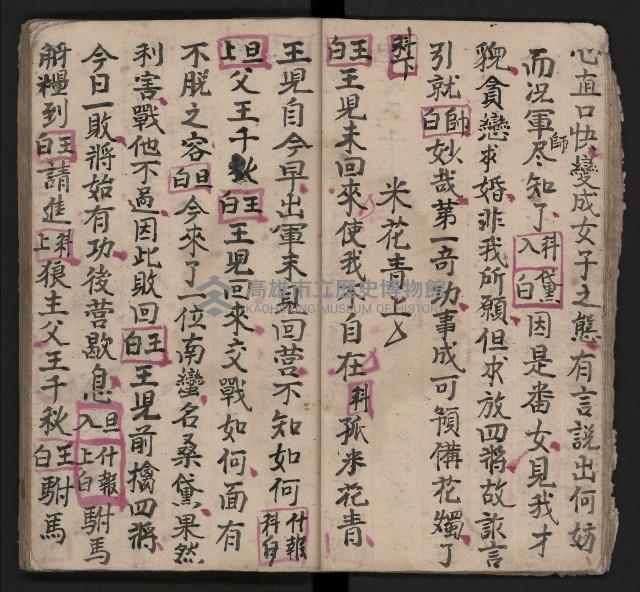 心直口快變成女子之態有言說出何妨
而況軍師尽知了 科入 黛白 因是番女見我才
貌貪戀求婚非我所願但求放四將故詼言
引就 師白 妙哉第一奇功事成可預備花燭了
科下 米花青上
王白 王児未回來使我不自在 科 孤米花青
王児自今早出軍未見回营不知如何 什報科白
旦上 父王千秋 王白 王児回來交戰如何面有
不脫之容 旦白 今來了一位南蠻名桑黛果然
利害戰他不過因此敗回 王白 王児前擒四將
今日一敗將始有功後营歇息 旦入 什報上白 駙馬
解糧到 王白 請進 科上 狼主父王千秋 王白 駙馬
高雄市立歷史博物館
KAOHSIUNG MUSEUM OF HISTORY